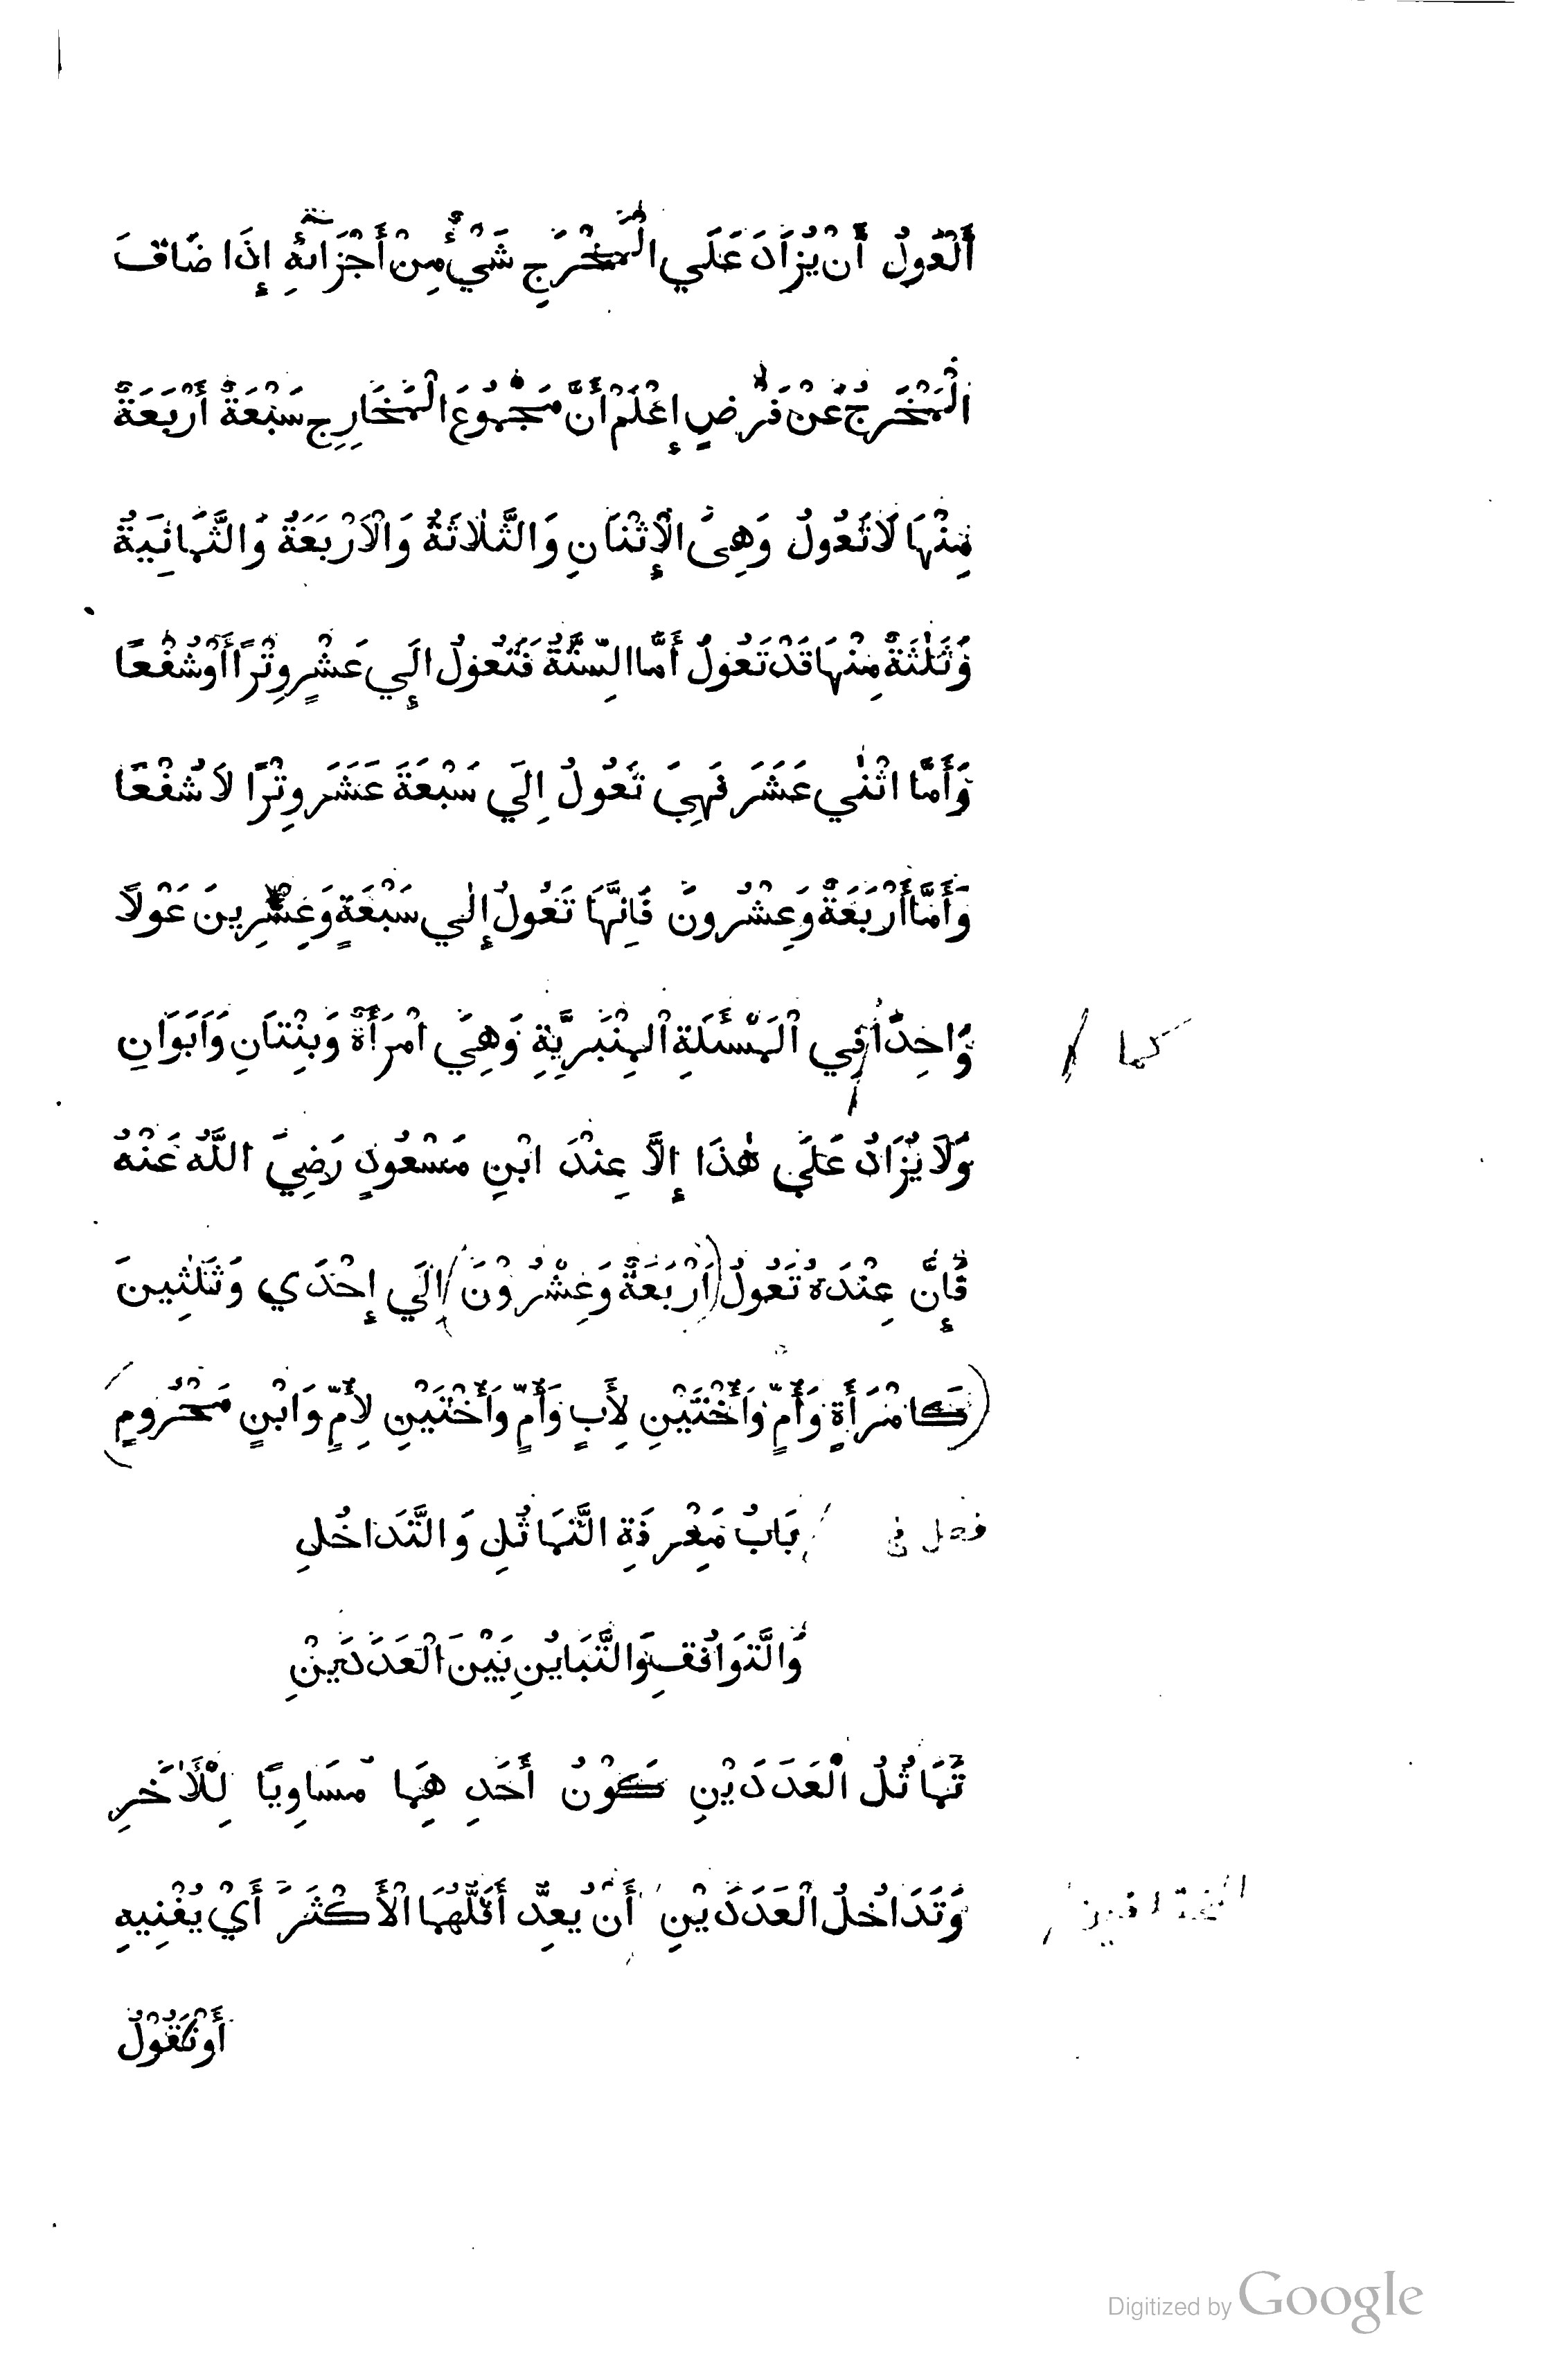 أَلْعَوْلُ أَنْ يُزَادَ عَلَي الْمَخْرَجِ شَيْءٌ مِنْ أَجْزَائِهِ إِذَا ضَاقَ
الْمَخْرَجُ عَنْ فَرْضٍ إِعْلَمْ أَنَّ مَجْمُوعَ الْمَخَارِجِ سَبْعَةٌ أَرْبَعَةٌ
مِنْهَا لَا تَعُولُ وَهِيَ الْإِثْنَانِ وَالثَّلَاثَةُ وَالْاَرْبَعَةُ وَالثَّمَانِيَةُ
وَثَلٰثَةٌ مِنْهَا قَدْ تَعُولُ أَمَّا السِّتَّةُ فَتَعُولُ اِلَي عَشْرٍ وِتْرًا أَوْ شَفْعًا
وَأَمَّا اثْنٰي عَشَرَ فَهِيَ تَعُولُ اِلَي سَبْعَةَ عَشَرَ وِتْرًا لَا شَفْعًا
وَأَمَّا أَرْبَعَةٌ وَعِشْرُونَ فَاِنَّهَا تَعُولُ إِلٰي سَبْعَةٍ وَعِشْرِينَ عَوْلًا
وَاحِدًا فِي الْمَسْئَلَةِ الْمِنْبَرِيَّةِ وَهِيَ امْرَأَةٌ وَبِنْتَانِ وَاَبَوَانِ
كما /
وَلَا يُزَادُ عَلَي هٰذَا إِلَّا عِنْدَ ابْنِ مَسْعُودٍ رَضِيَ اللَّهُ عَنْهُ
فَإِنَّ عِنْدَهُ تَعُولُ (اَرْبَعَةٌ وَعِشْرُوْنَ) اِلَي إِحْدَي وَثَلٰثِينَ
(كَامْرَأَةٍ وَأُمٍّ وَأُخْتَيْنِ لِأَبٍ وَأُمٍّ وَأُخْتَيْنِ لِأُمٍّ وَابْنٍ مَحْرُومٍ)
فصل في / بَابُ مَعْرِفَةِ التَّمَاثُلِ وَالتَّدَاخُلِ
وَالتَّوَافُقِ وَالتَّبَايُنِ بَيْنَ الْعَدَدَيْنِ
تَمَاثُلُ الْعَدَدَيْنِ كَوْنُ أَحَدِهِمَا مُسَاوِيًا لِلْأٰخَرِ
وَتَدَاخُلُ الْعَدَدَيْنِ أَنْ يُعِدَّ أَقَلُّهُمَا الْأَكْثَرَ أَيْ يُفْنِيهِ
المختلفين /
أَوْ نَقُوْلُ
Digitized by Google